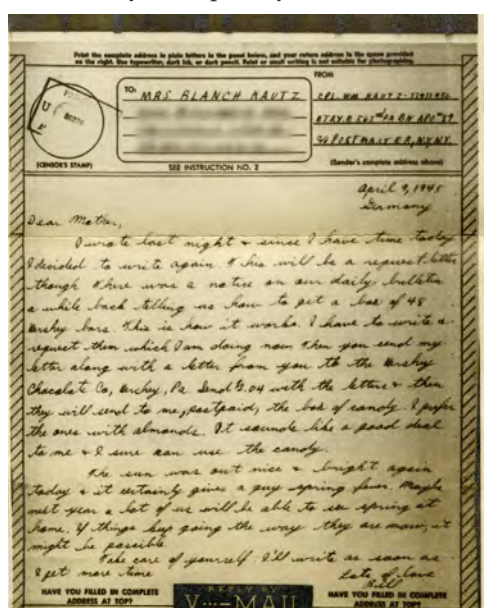 Print the complete address in plain letters in the panel below, and your return address in the space provided
on the right. Use typewriter, dark ink, or dark pencil. Faint or small writing is not suitable for photographing.
FROM
TO:
MRS BLANCH KAUTZ
CPL WM KAUTZ-
BTRY B 565 BN APO 89
% POSTMASTER, NY NY.
(CENSOR'S STAMP)
SEE INSTRUCTION NO. 2
(Sender's complete address above)
April 9, 1945
Germany
Dear Mother,
I wrote last night & since I have time today
I decided to write again. This will be a request letter
though. There was a notice on our daily bulletin
a while back telling us how to get a box of 48
Hershey bars. This is how it works. I have to write a
request then which I am doing now. Then you send my
letter along with a letter from you to the Hershey
Chocolate Co, Hershey, Pa. Send .04 with the letters & then
they will send to me, postpaid, the box of candy. I prefer
the ones with almonds. It sounds like a good deal
to me & I sure can use the candy.
The sun was out nice & bright again
today & it certainly gives a guy spring fever. Maybe
next year a lot of us will be able to see spring at
home. If things keep going the way they are now, it
might be possible.
Take care of yourself. I'll write as soon as
I get more time
Lots of love
Bill
HAVE YOU FILLED IN COMPLETE
ADDRESS AT TOP?
REPLY BY
V···—MAIL
HAVE YOU FILLED IN COMPLETE
ADDRESS AT TOP?